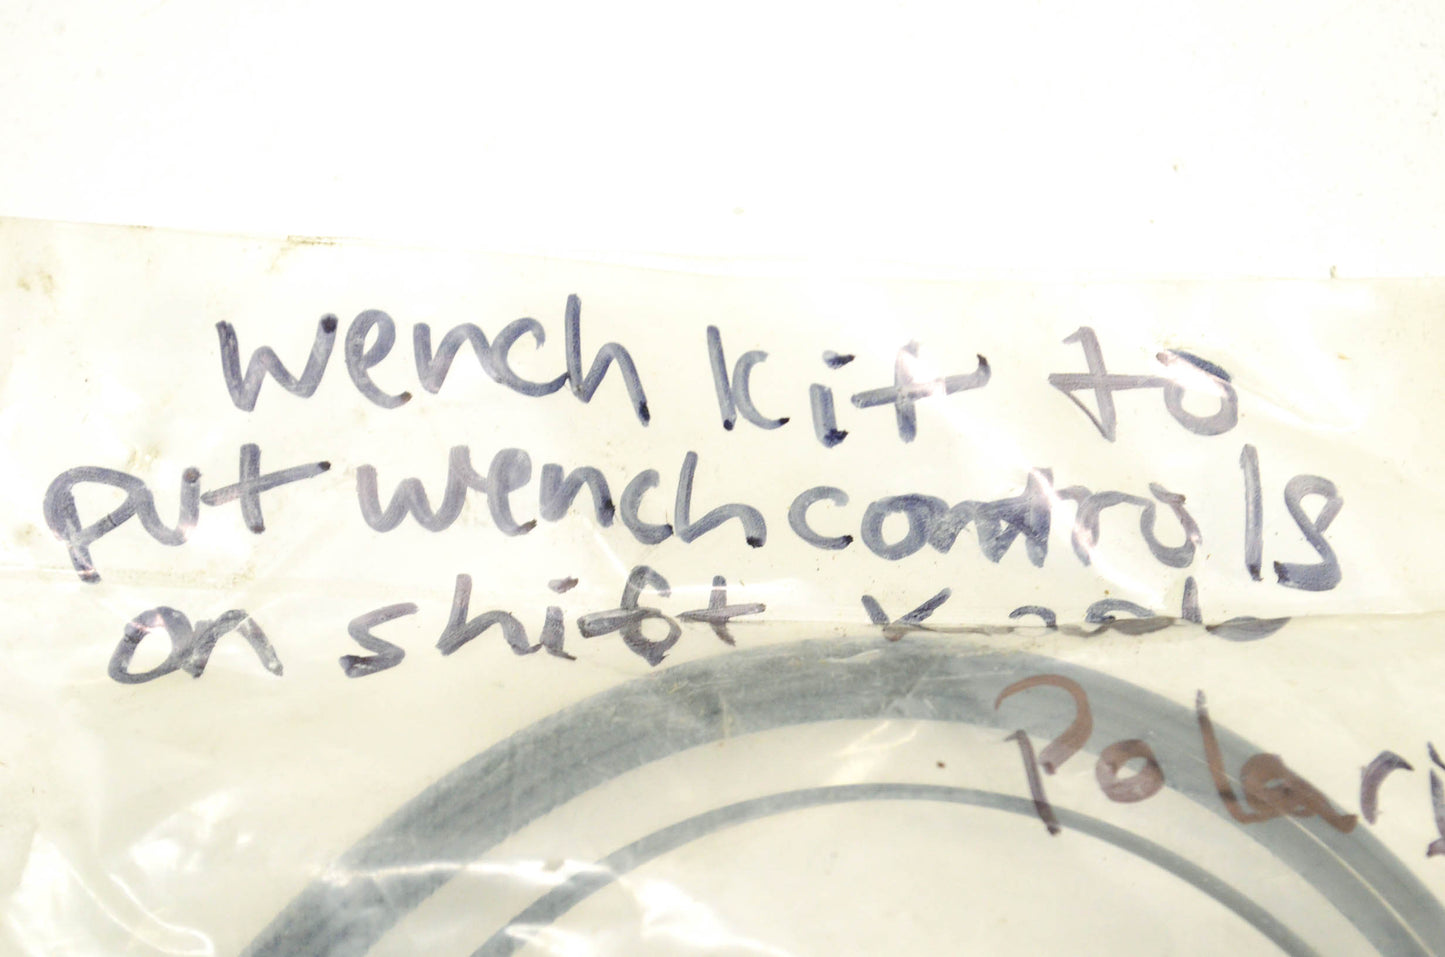 wench kit to
put wench controls
on shift
Polar